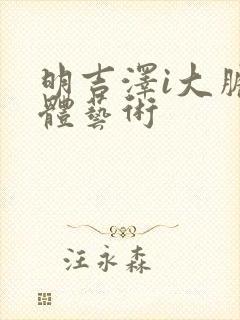 明吉澤i大胆
體藝術
汪永森